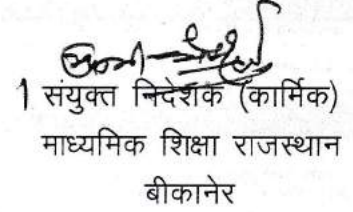 1 संयुक्त निदेशक (कार्मिक)
माध्यमिक शिक्षा राजस्थान
बीकानेर